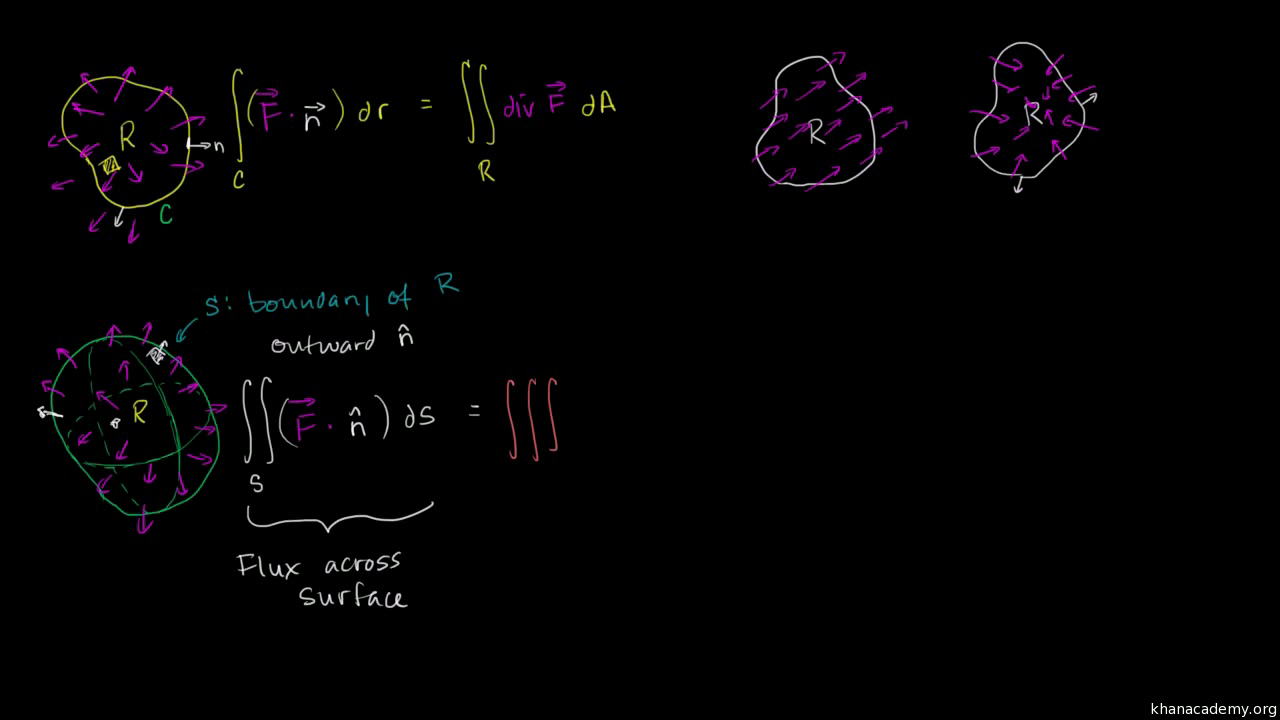 R
n
C
∫_C (F⃗ · n⃗) dr = ∬_R div F⃗ dA
R
R
S: boundary of R
outward n̂
R
∬_S (F⃗ · n̂) dS = ∭
Flux across
surface
khanacademy.org